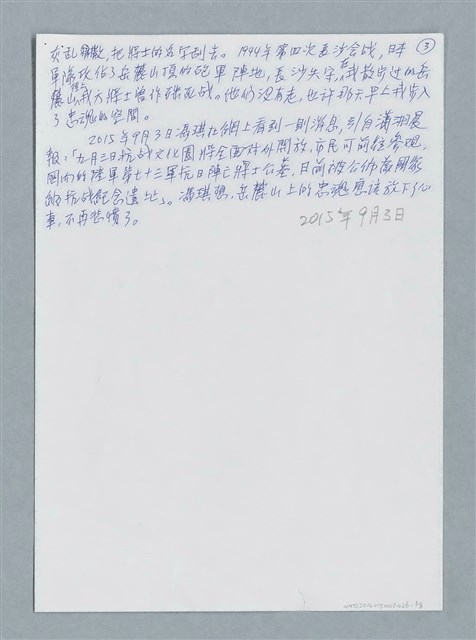 ③
亥乱錘敲,把將士的名字刮去。1944年第四次長沙会战,日本
軍隊攻佔了岳麓山頂的砲軍陣地,長沙失守,在我散步过的岳
麓山,我方將士曾作殊死战。他们没有走,也许那天早上我步入
了忠魂的空間。
2015年9月3日馮琪在網上看到一則消息,引自瀟湘晨
報:「九月三日抗战文化園將全面对外開放,市民可前往參观,
園内的陸軍第七十三軍抗日陣亡將士公墓,日前被公佈為國家
級抗战紀念遺址」。馮琪想,岳麓山上的忠魂应该放下了心
事,不再悲憤了。
2015年9月3日